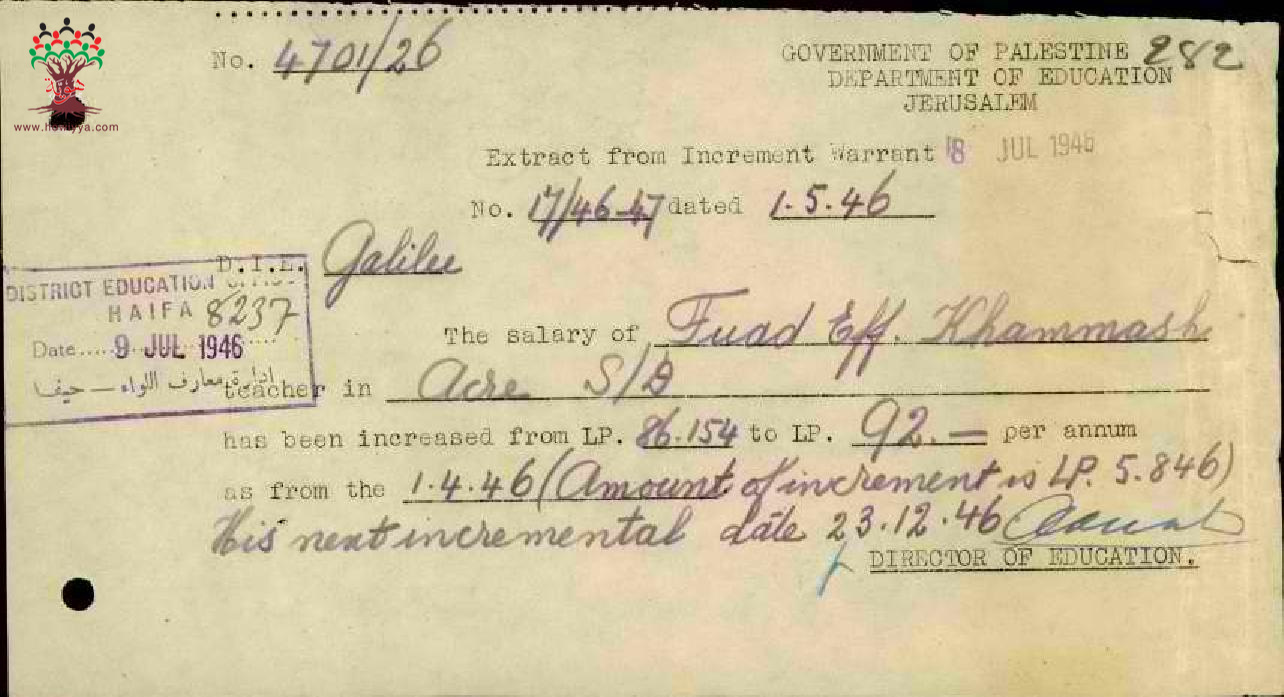 No. 4701/26
282
GOVERNMENT OF PALESTINE
DEPARTMENT OF EDUCATION
JERUSALEM
www.howiyya.com
Extract from Increment Warrant
8 JUL 1946
No. 17/46-47 dated 1.5.46
D.I.E. Galilee
DISTRICT EDUCATION
HAIFA 8237
Date..... 9 JUL 1946
ادارة معارف اللواء — حيفا
The salary of Fuad Eff. Khammash
teacher in Acre S/D
has been increased from LP. 86.154 to LP. 92.— per annum
as from the 1.4.46 (Amount of increment is LP. 5.846)
His next incremental date 23.12.46
DIRECTOR OF EDUCATION.